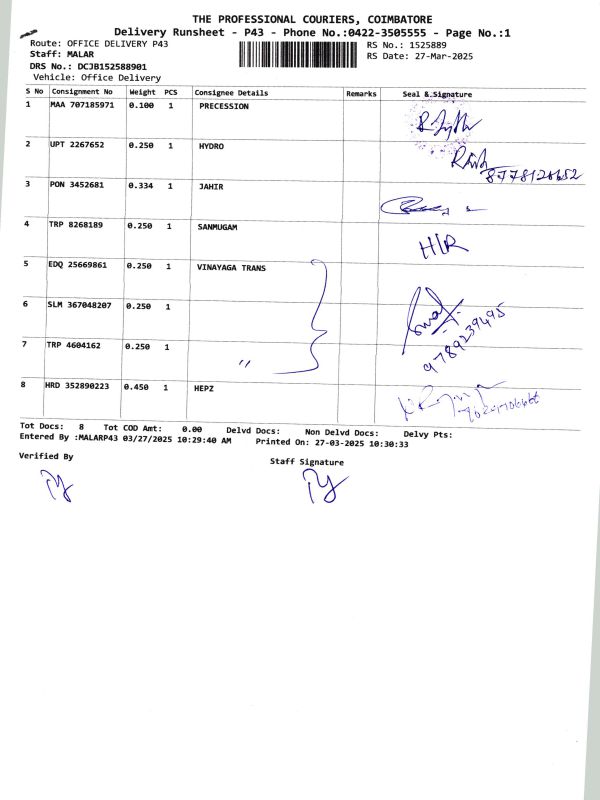 THE PROFESSIONAL COURIERS, COIMBATORE
Delivery Runsheet - P43 - Phone No.:0422-3505555 - Page No.:1
Route: OFFICE DELIVERY P43 RS No.: 1525889
Staff: MALAR RS Date: 27-Mar-2025
DRS No.: DCJB152588901
Vehicle: Office Delivery
S No Consignment No Weight PCS Consignee Details Remarks Seal & Signature
1 MAA 707185971 0.100 1 PRECESSION
2 UPT 2267652 0.250 1 HYDRO
8778126652
3 PON 3452681 0.334 1 JAHIR
4 TRP 8268189 0.250 1 SANMUGAM H/R
5 EDQ 25669861 0.250 1 VINAYAGA TRANS
6 SLM 367048207 0.250 1
9789239495
7 TRP 4604162 0.250 1 "
8 HRD 352890223 0.450 1 HEPZ
Tot Docs: 8 Tot COD Amt: 0.00 Delvd Docs: Non Delvd Docs: Delvy Pts:
Entered By :MALARP43 03/27/2025 10:29:40 AM Printed On: 27-03-2025 10:30:33
Verified By Staff Signature